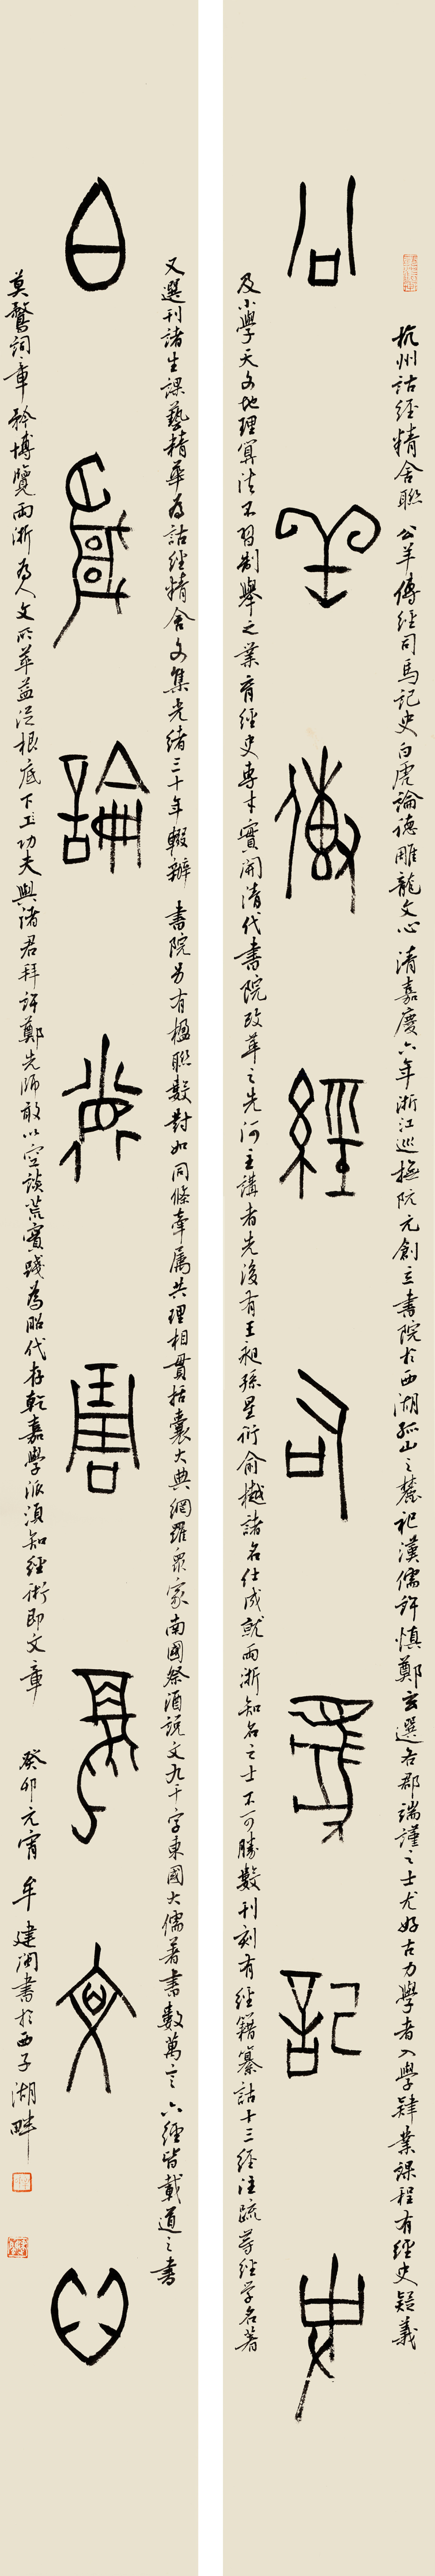 杭州詁經精舍聯 公羊傳經司馬記史白虎論德雕龍文心 清嘉慶六年浙江巡撫阮元創立書院於西湖孤山之麓祀漢儒許慎鄭玄選各郡端謹之士尤好古力學者入學肄業課程有經史疑義
公羊傳經司馬記史
及小學天文地理算法不習制舉之業有經史專本實開清代書院改革之先河主講者先後有王昶孫星衍俞樾諸名仕成就兩浙知名之士不可勝數刊刻有經籍纂詁十三經注疏等經學名著
又選刊諸生課藝精華為詁經精舍文集光緒三十年輟辦 書院另有楹聯數對如同條牽屬共理相貫括囊大典網羅眾家南國祭酒說文九千字東國大儒著書數萬言六經皆載道之書
白虎論德雕龍文心
莫騖詞章矜博覽兩浙為人文所萃益從根底下工功夫與諸君拜許鄭先師敢以空談荒實踐為昭代存乾嘉學派須知經術即文章 癸卯元宵 牟建閩書於西子湖畔